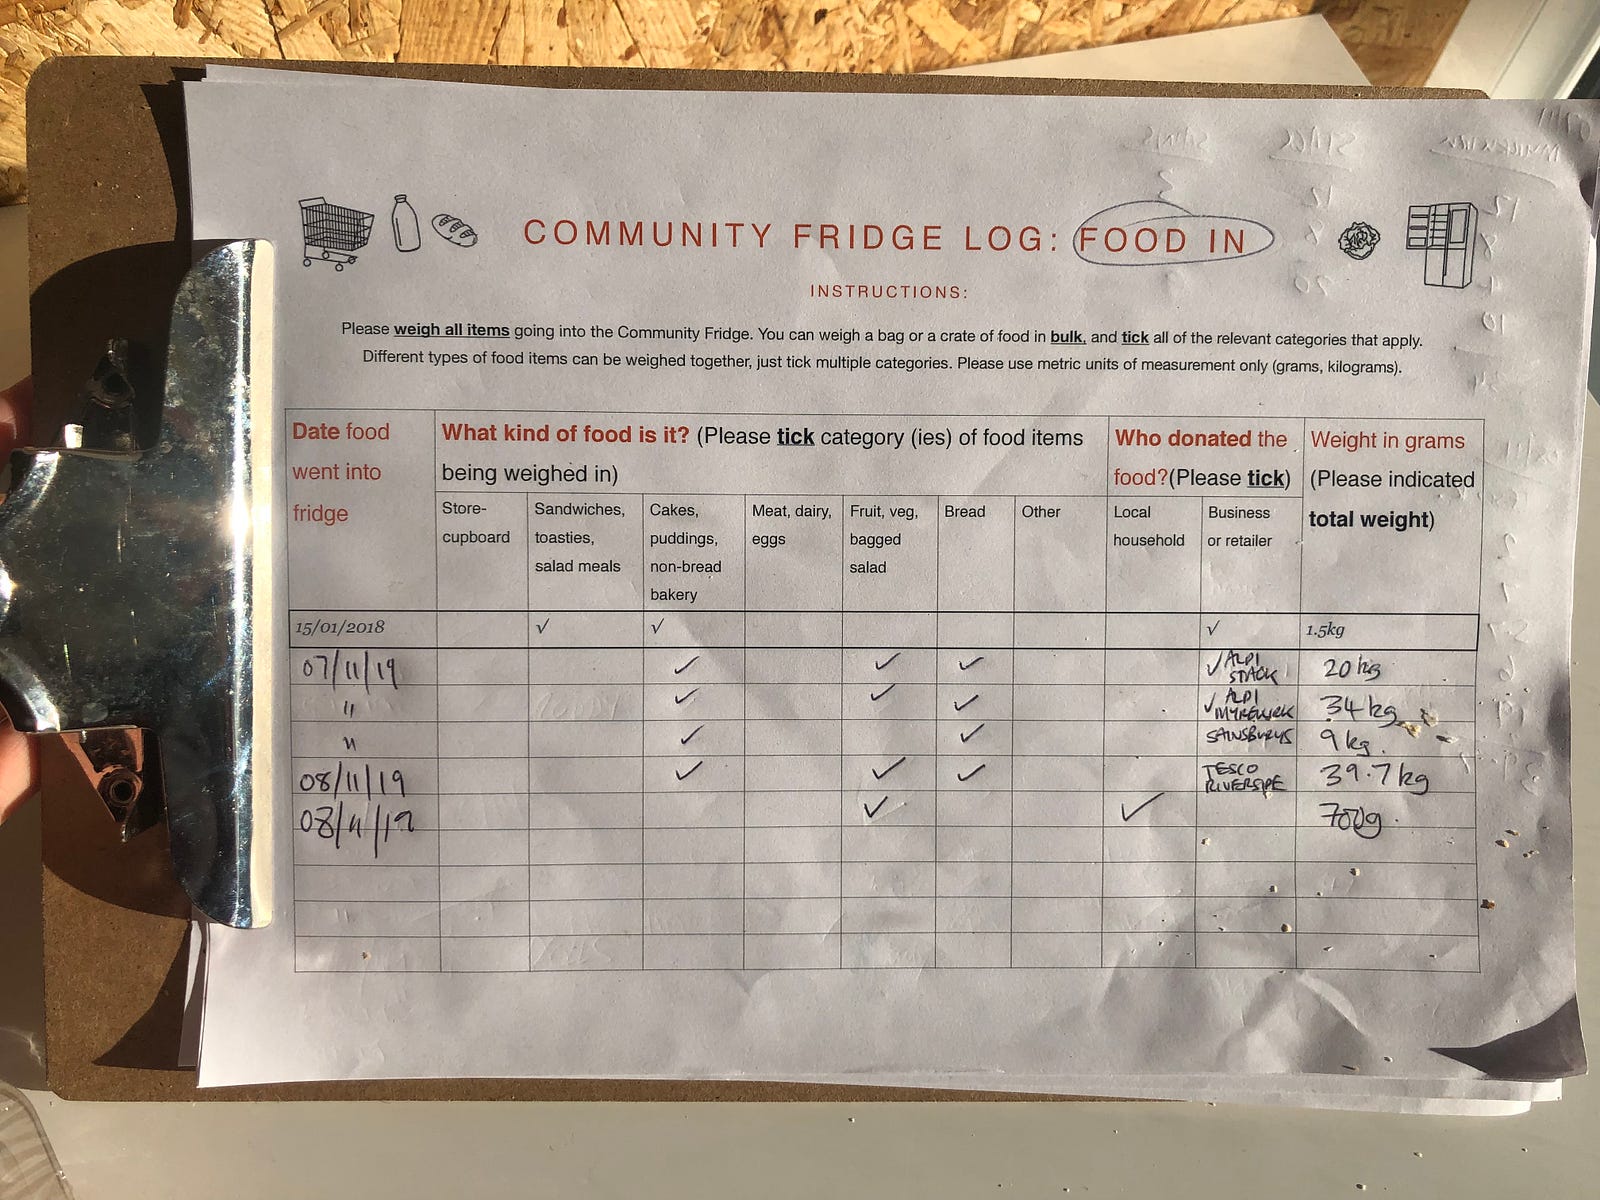 COMMUNITY FRIDGE LOG: FOOD IN
INSTRUCTIONS:
Please weigh all items going into the Community Fridge. You can weigh a bag or a crate of food in bulk, and tick all of the relevant categories that apply.
Different types of food items can be weighed together, just tick multiple categories. Please use metric units of measurement only (grams, kilograms).
Date food
went into
fridge
What kind of food is it? (Please tick category (ies) of food items
being weighed in)
Who donated the
food?(Please tick)
Weight in grams
(Please indicated
total weight)
Store-
cupboard
Sandwiches,
toasties,
salad meals
Cakes,
puddings,
non-bread
bakery
Meat, dairy,
eggs
Fruit, veg,
bagged
salad
Bread
Other
Local
household
Business
or retailer
15/01/2018 √ √ √ 1.5kg
07/11/19 ✓ ✓ ✓ ✓ ALDI
STACK 20 kg
" ✓ ✓ ✓ ✓ ALDI
34 kg
" ✓ ✓ SAINSBURYS 9 kg.
08/11/19 ✓ ✓ ✓ TESCO
RIVERSIDE 39.7 kg
08/11/19 ✓ ✓ 700g.